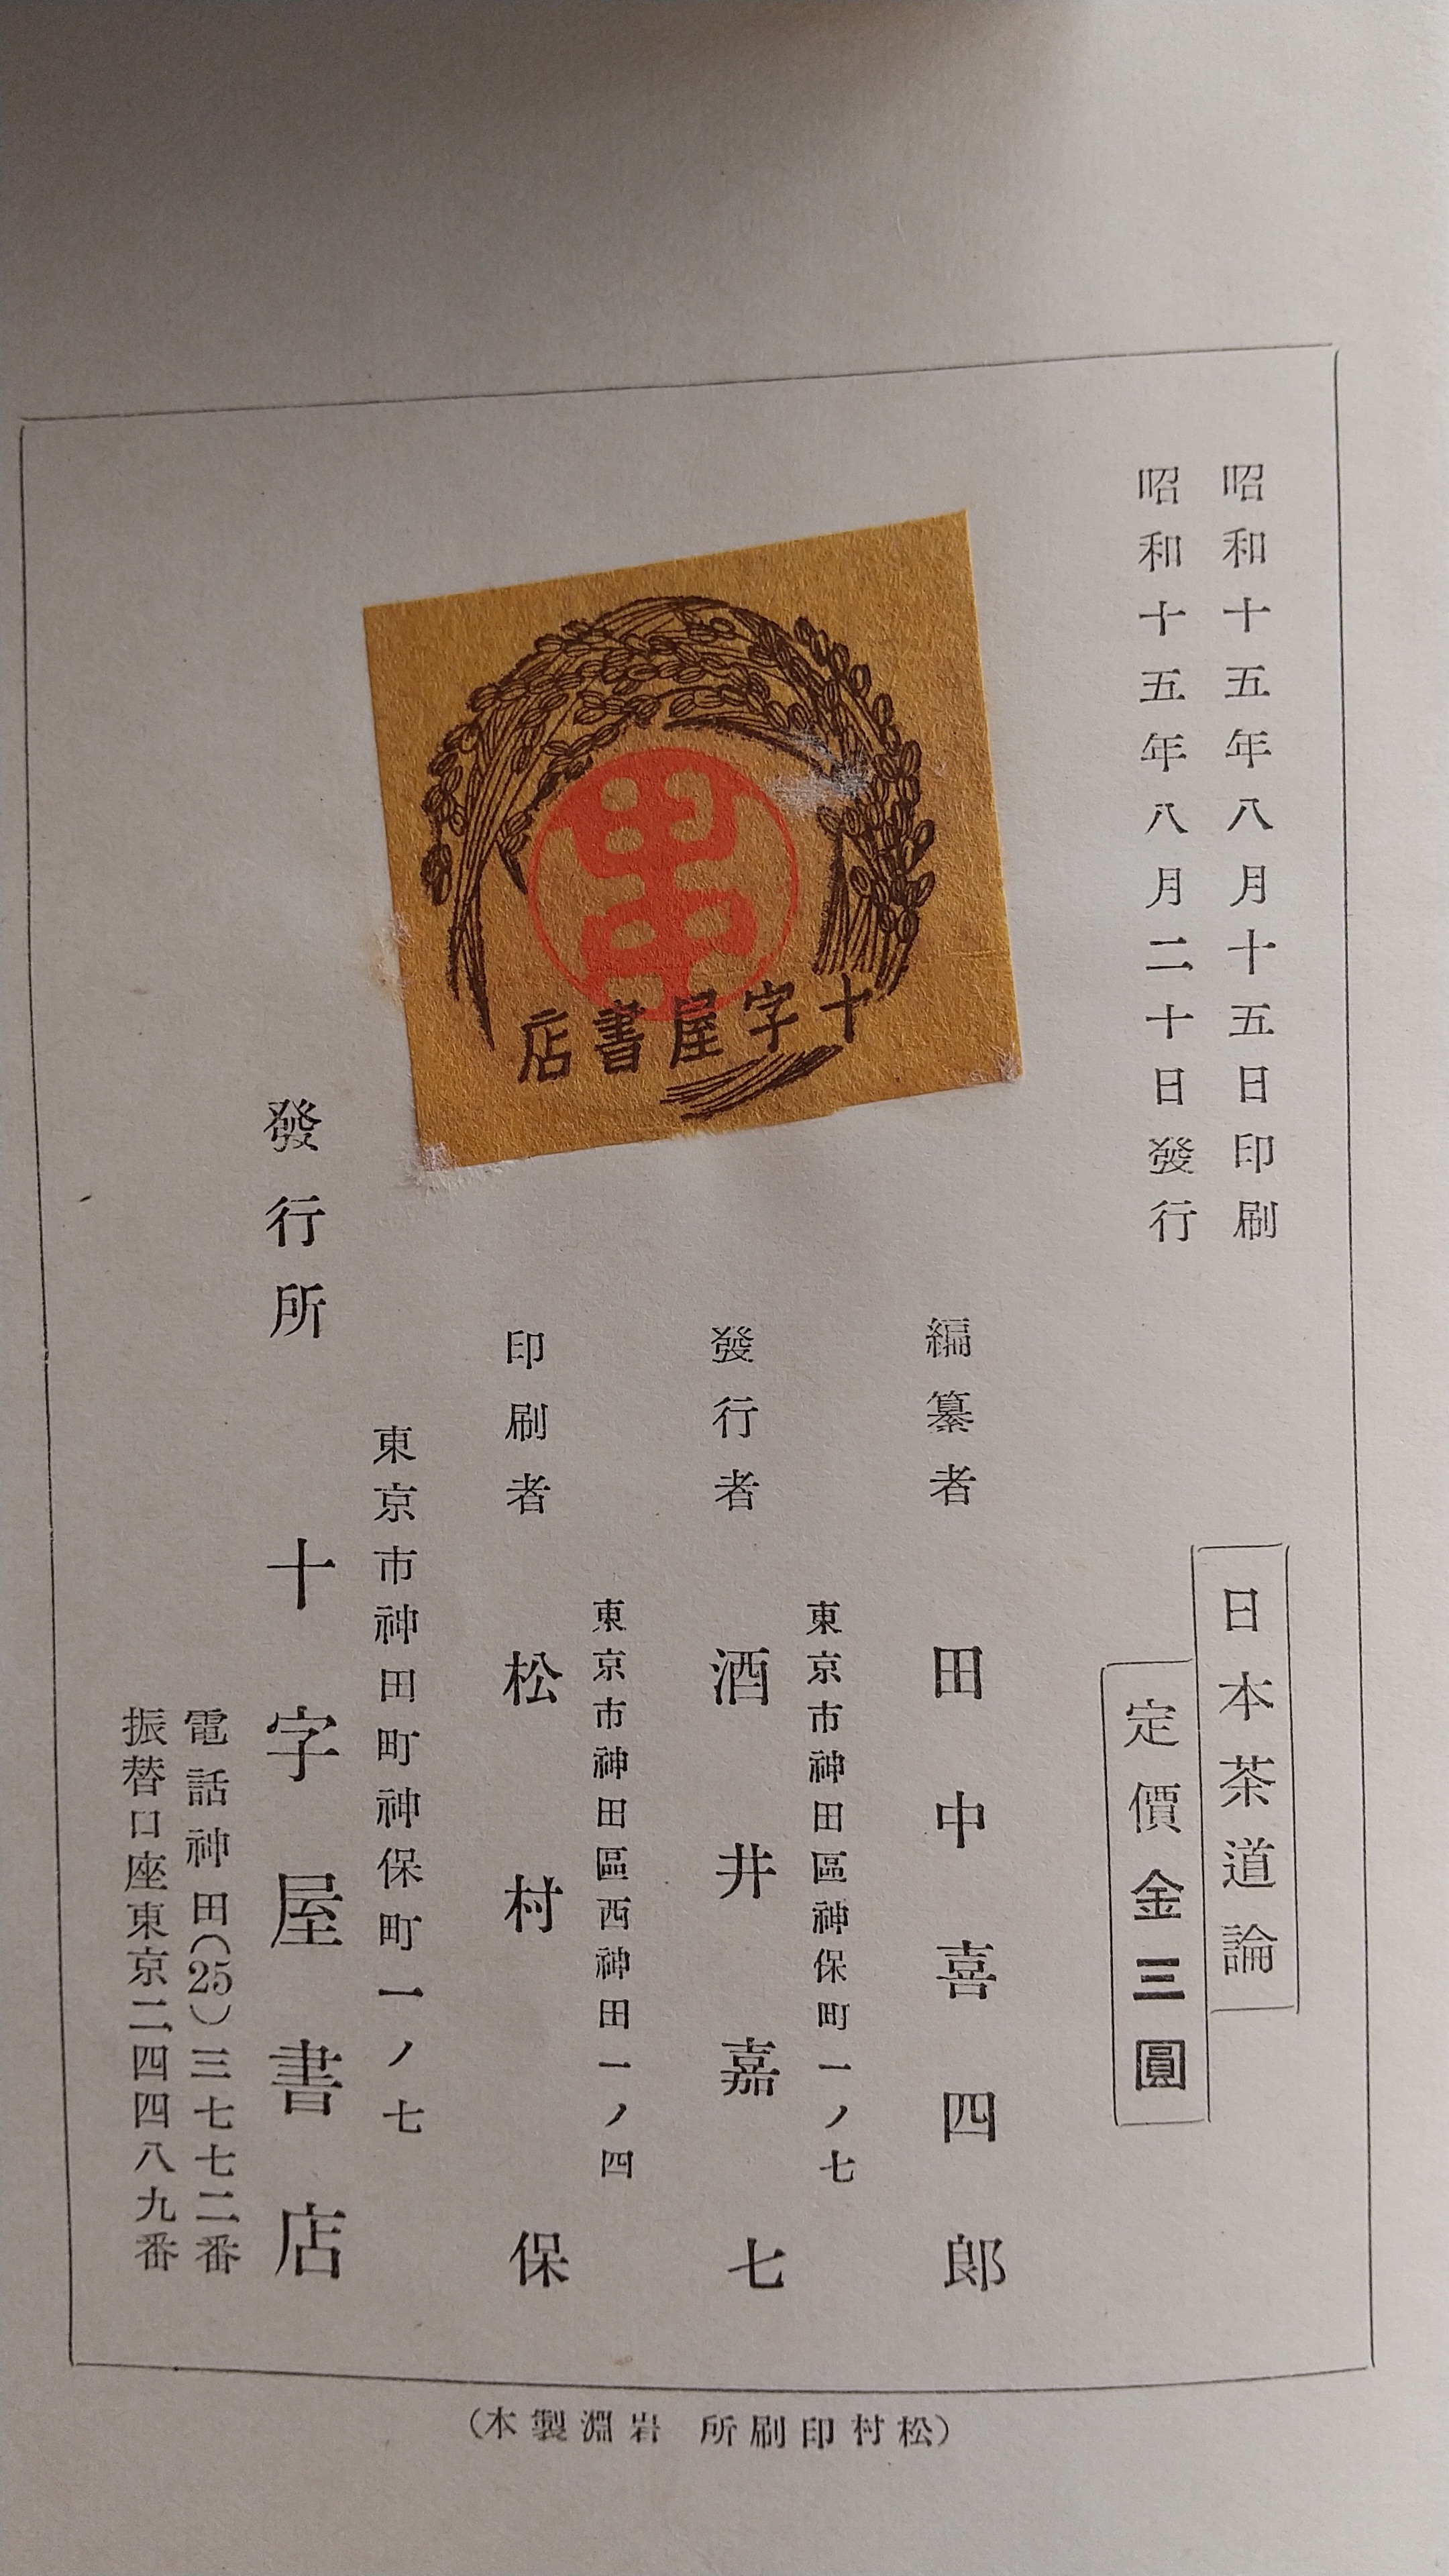 昭和十五年八月十五日印刷
昭和十五年八月二十日發行
日本茶道論
定價金三圓
編纂者 田中喜四郎
東京市神田區神保町一ノ七
發行者 酒井嘉七
東京市神田區西神田一ノ四
印刷者 松村保
東京市神田町神保町一ノ七
發行所 十字屋書店
電話神田(25)三七七二番
振替口座東京二四四八九番
十字屋書店
(松村印刷所 岩淵製本)